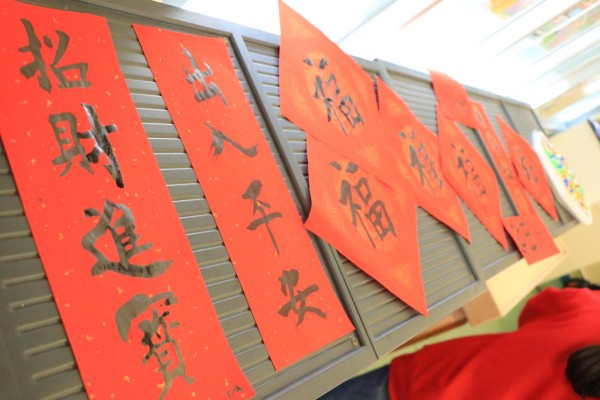 招財進寶
出入平安
福
福
福
福